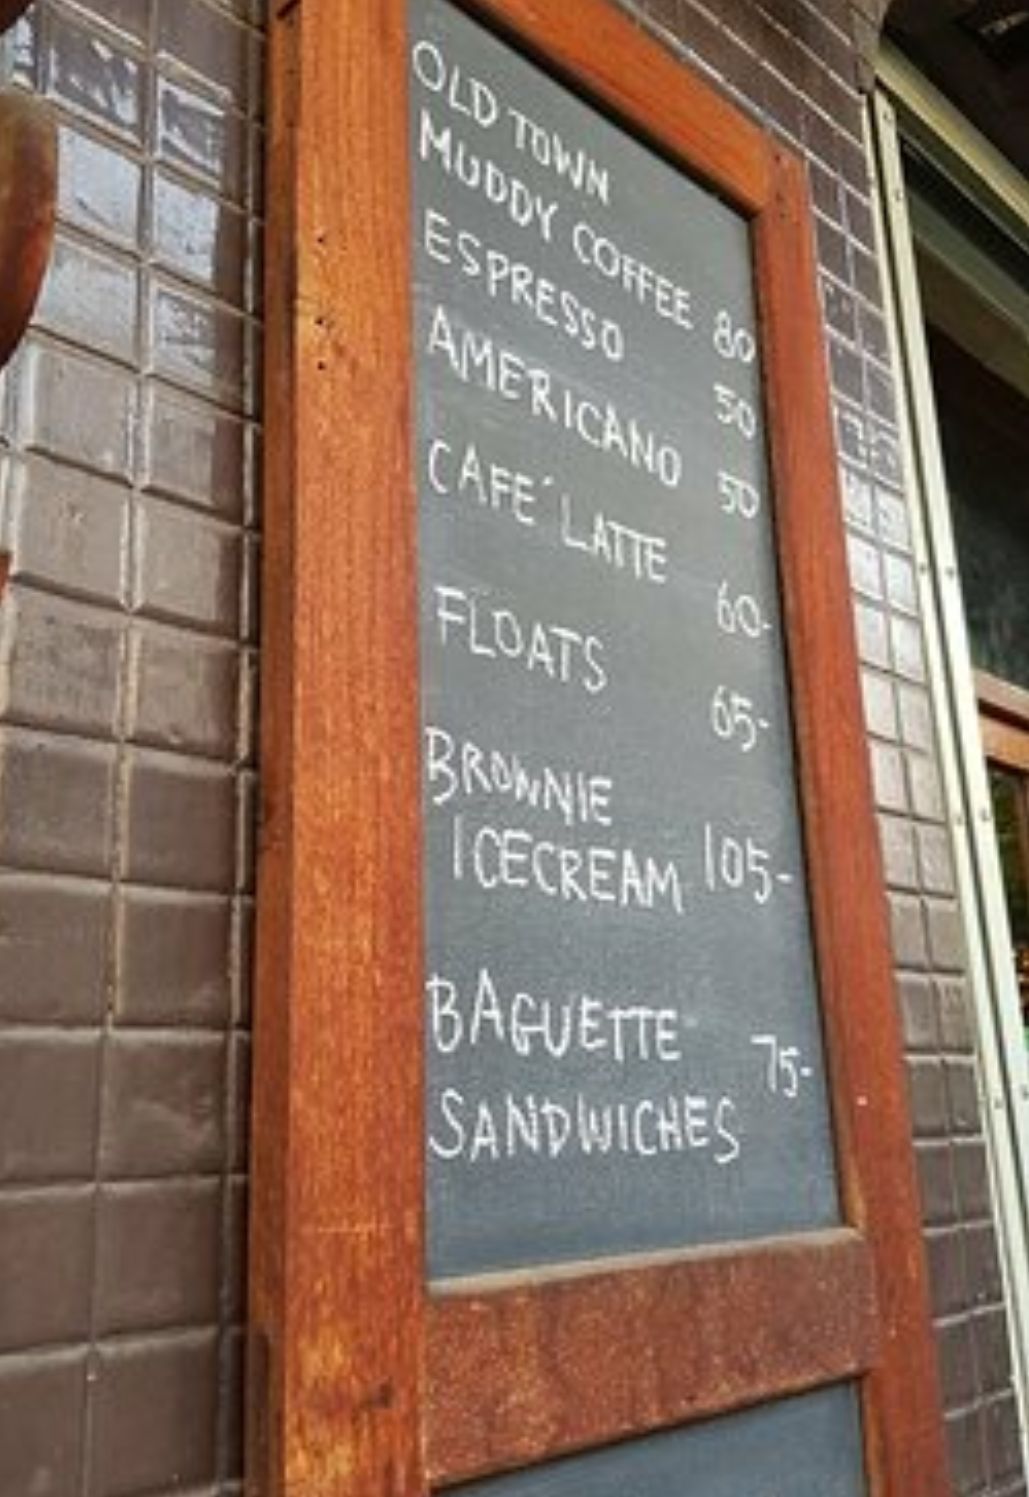 OLD TOWN
MUDDY COFFEE 80
ESPRESSO 50
AMERICANO 50
CAFE´ LATTE 60-
FLOATS 65-
BROWNIE
ICECREAM 105-
BAGUETTE 75-
SANDWICHES